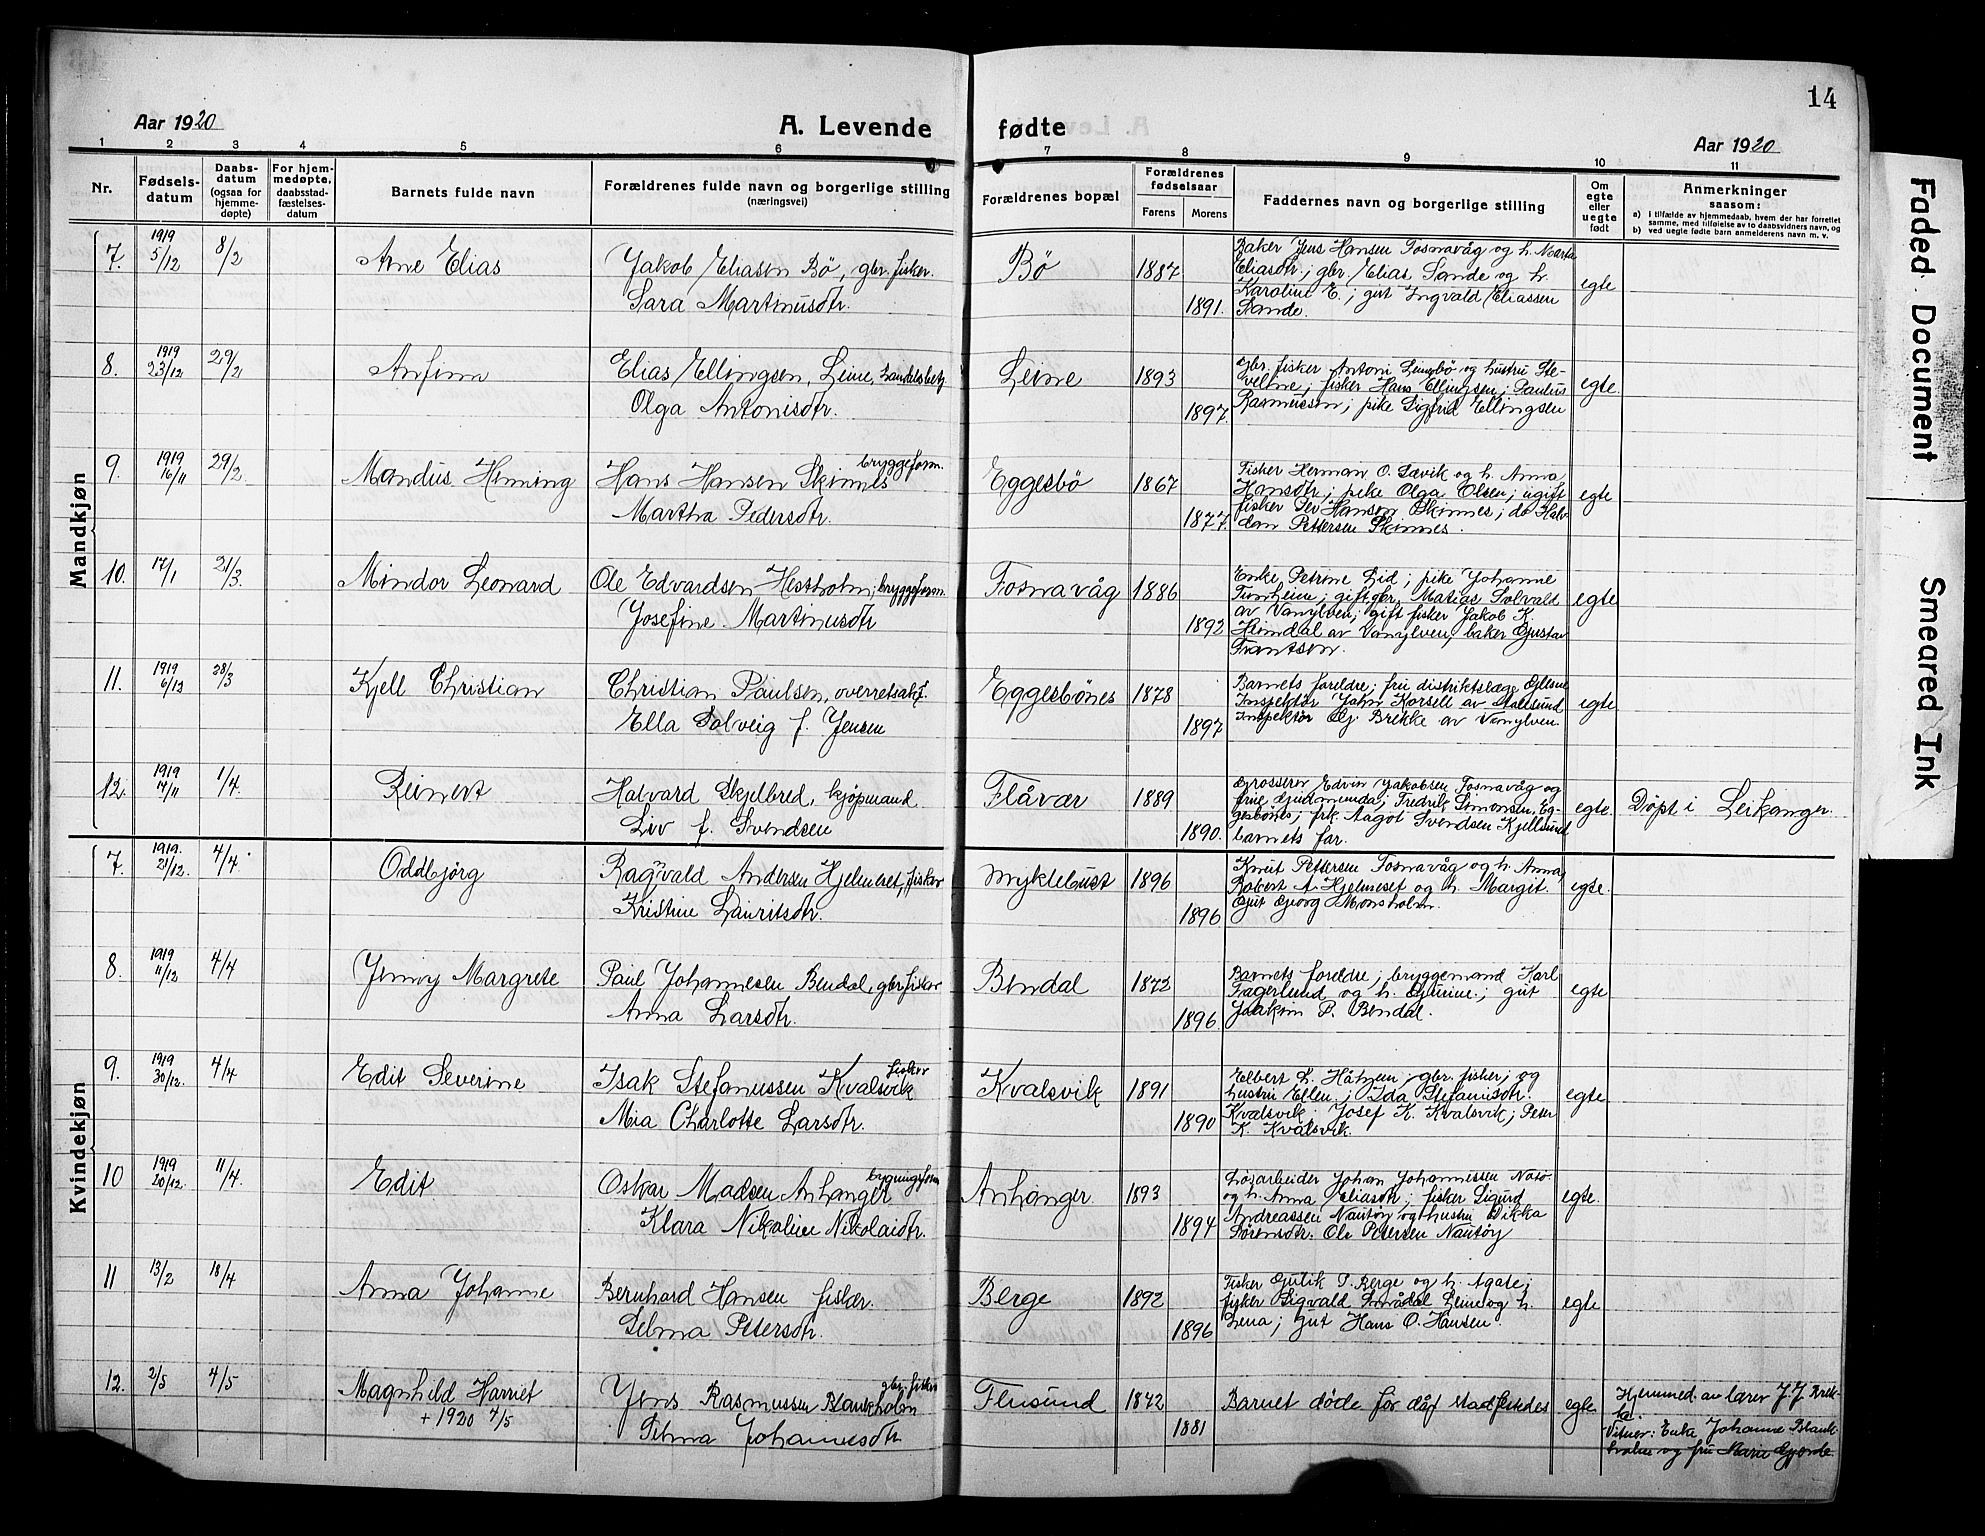 14
Aar 1920
A. Levende fødte
Aar 1920
1 2 3 4 5 6 7 8 9 10 11
Nr.
Fødsels-
datum
Daabs-
datum
(ogsaa for
hjemme-
døpte)
For hjem-
medøpte,
daabsstad-
fæstelses-
datum
Barnets fulde navn
Forældrenes fulde navn og borgerlige stilling
(næringsvei)
Forældrenes bopæl
Forældrenes
fødselsaar
Farens Morens
Faddernes navn og borgerlige stilling
Om
egte
eller
uegte
født
Anmerkninger
saasom:
a) i tilfælde av hjemmedaab, hvem der har forrettet
samme, med tilføielse av to daabsvidners navn, og
b) ved uegte fødte barn anmelderens navn m. v.
Mandkjøn
7. 1919 5/12 8/2 Arne Elias
Jakob Eliassen Bø, gbr. fisker.
Sara Martinusdtr.
Bø 1887 1891.
Baker Jens Hansen Fosnavåg og h. Marta
Eliasdtr.; gbr. Elias Sande og h.
Karoline E.; gut Ingvald Eliassen
Sande.
egte
8. 1919 23/12 29/2 Anfinn
Elias Ellingsen, Leine,
Olga Antonisdtr.
Leine 1893 1897.
gbr. fisker Antoni Leinebø og hustru Ste-
veline; fisker Hans Ellingsen; Paulus
Rasmussen; pike Sigfrid Ellingsen
egte.
9. 1919 16/11 29/2 Mandus Henning
Hans Hansen Skinnes bryggeform.
Martha Pedersdtr.
Eggesbø 1867 1877.
Fisker Herman O. Sævik og h. Anna
Hansdtr; pike Olga Olsen; ugift
fisker Per Hansen Skinnes; do Halv-
dan Pettersen Skinnes.
egte
10. 17/1 21/3 Mindor Leonard
Ole Edvardsen Hestholm; bryggeform.
Josefine Martinusdtr
Fosnavåg 1886 1892
Enke Petrine Lid; pike Johanne
Tunheim; gift gbr. Matias Solvald
av Vanylven; gift fisker Jakob K.
Heimdal av Vanylven, baker Gustav
Frantsen.
egte
11. 1919 6/12 28/3 Kjell Christian
Christian Paulsen, overretsakf.
Ella Solveig f. Jensen
Eggesbönes 1878 1897
Barnets foreldre; fru distriktslæge
Inspektør John Korsell av
Inspektør Brekke av Vanylven.
egte
12. 1919 14/11 1/4. Reinert
Halvard Skjelbred, kjöpmand.
Liv f. Svendsen
Flåvær 1889 1890.
Grosserer Edvin Jakobsen Fosnavåg og
frue Gudmunda; Fredrik Simonsen, Eg-
gesbönes; frk. Aagot Svendsen Kjellsund
barnets far.
egte. Döpt i Leikanger
Kvindekjøn
7. 1919. 21/12. 4/4. Oddbjörg
Ragnvald Andersen Hjelmeset, fisker
Kristine Lauritsdtr.
Myklebust 1896 1896.
Knut Pettersen Fosnavåg og h. Anna,
Robert A. Hjelmeset og h. Margit.
Gut Georg Monsholm.
egte.
8. 1919 11/12 4/4 Jenny Margrete
Paul Johannesen Bendal, gbr. fisker
Anna Larsdtr.
Bendal 1872 1896.
Barnets foreldre; bryggemand Karl
Fagerlund og h. Gurine.; gut
Joakim P. Bendal.
egte
9. 1919 30/12. 4/4 Edit Severine
Isak Stefanussen Kvalsvik fisker
Mia Charlotte Larsdtr.
Kvalsvik 1891 1890
Elbert L. gbr. fisker; og
hustru Ellen; Ida Stefanusdtr.
Kvalsvik. Josef K. Kvalsvik; Peter
K. Kvalsvik.
egte
10 1919 20/12. 11/4. Edit
Oskar Madsen Anhanger
Klara Nikoline Nikolaidtr.
Anhanger. 1893 1894
Løsarbeider Johan Johannessen
og h. Anna Eliasdtr; fisker Sigurd
Andreassen Nautøy og hustru Rikka
Sörensdtr. Ole Petersen Nautöy
egte.
11 13/2 18/4 Anna Johanne
Bernhard Hansen fisker.
Selma Petersdtr.
Berge 1892 1896
Fisker Gutik P. Berge og h. Agate;
fisker Sigvald Leine og h.
Lena; gut Hans O. Hansen.
egte
12. 2/5 4/5 Magnhild Harriet
+ 1920 4/5
Jens Rasmussen Blankholm gbr. fisker
Selma Johannesdtr
Flusund 1872 1881
Barnet døde før dåp stadfestedes
egte
Hjemmed. av lærer J. J. Brek-
ke.
Vitner: Enke Johanne Blank-
holm og fru Marie Gjerde
Faded Document
Smeared Ink